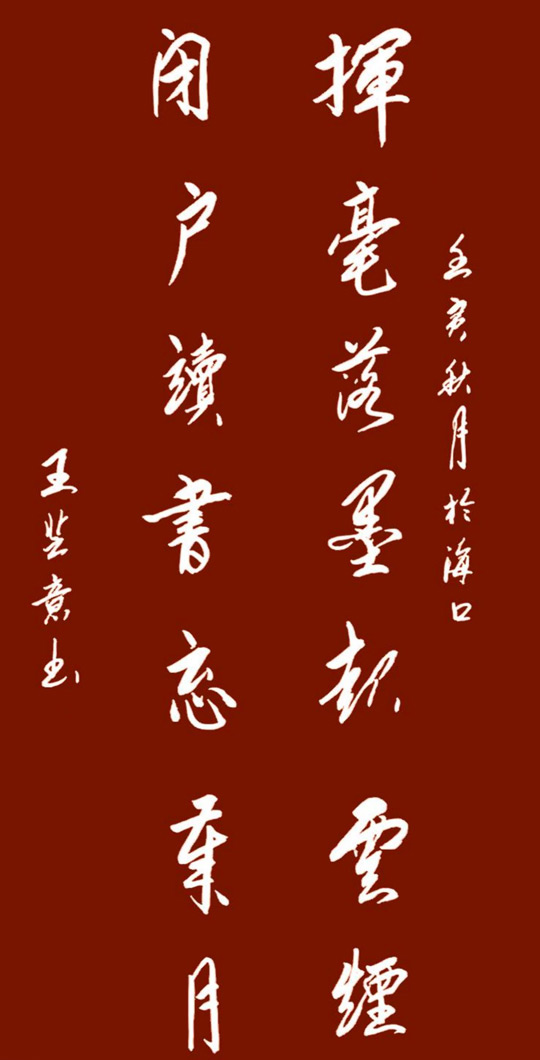 壬寅秋月於海口
揮毫落墨起雲煙
闭户讀書忘岁月
王